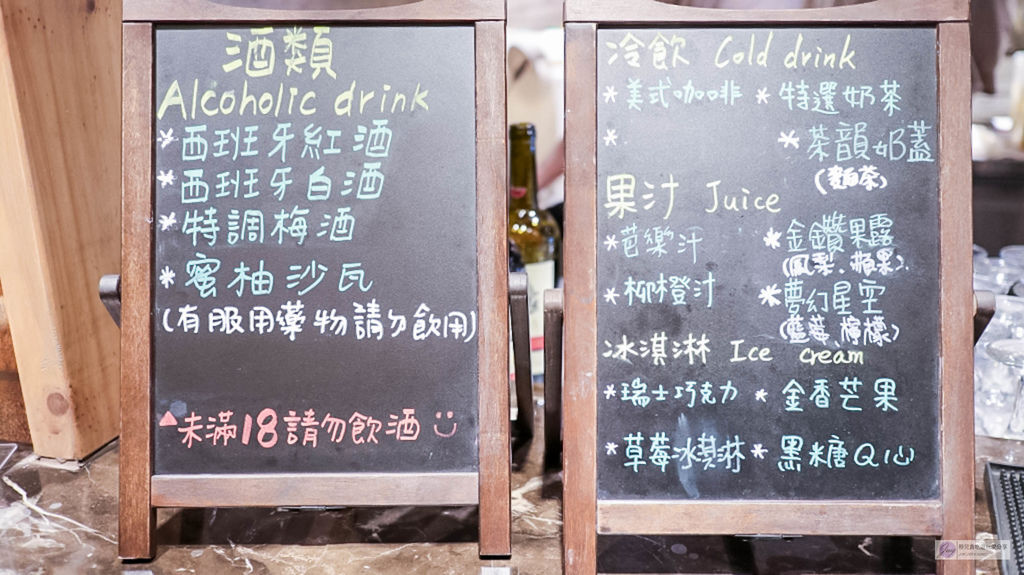 酒類
Alcoholic drink
*西班牙紅酒
*西班牙白酒
*特調梅酒
*蜜柚沙瓦
(有服用藥物請勿飲用)
▲未滿18請勿飲酒
冷飲 Cold drink
*美式咖啡 *特選奶茶
* *茶韻奶蓋
(麵茶)
果汁 Juice
*芭樂汁 *金鑽果露
(鳳梨、蘋果)
*柳橙汁 *夢幻星空
(藍莓、檸檬)
冰淇淋 Ice cream
*瑞士巧克力 *金香芒果
*草莓冰淇淋 *黑糖Q心